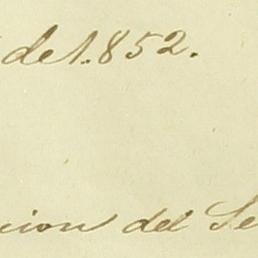 de 1.852.
cion del Se